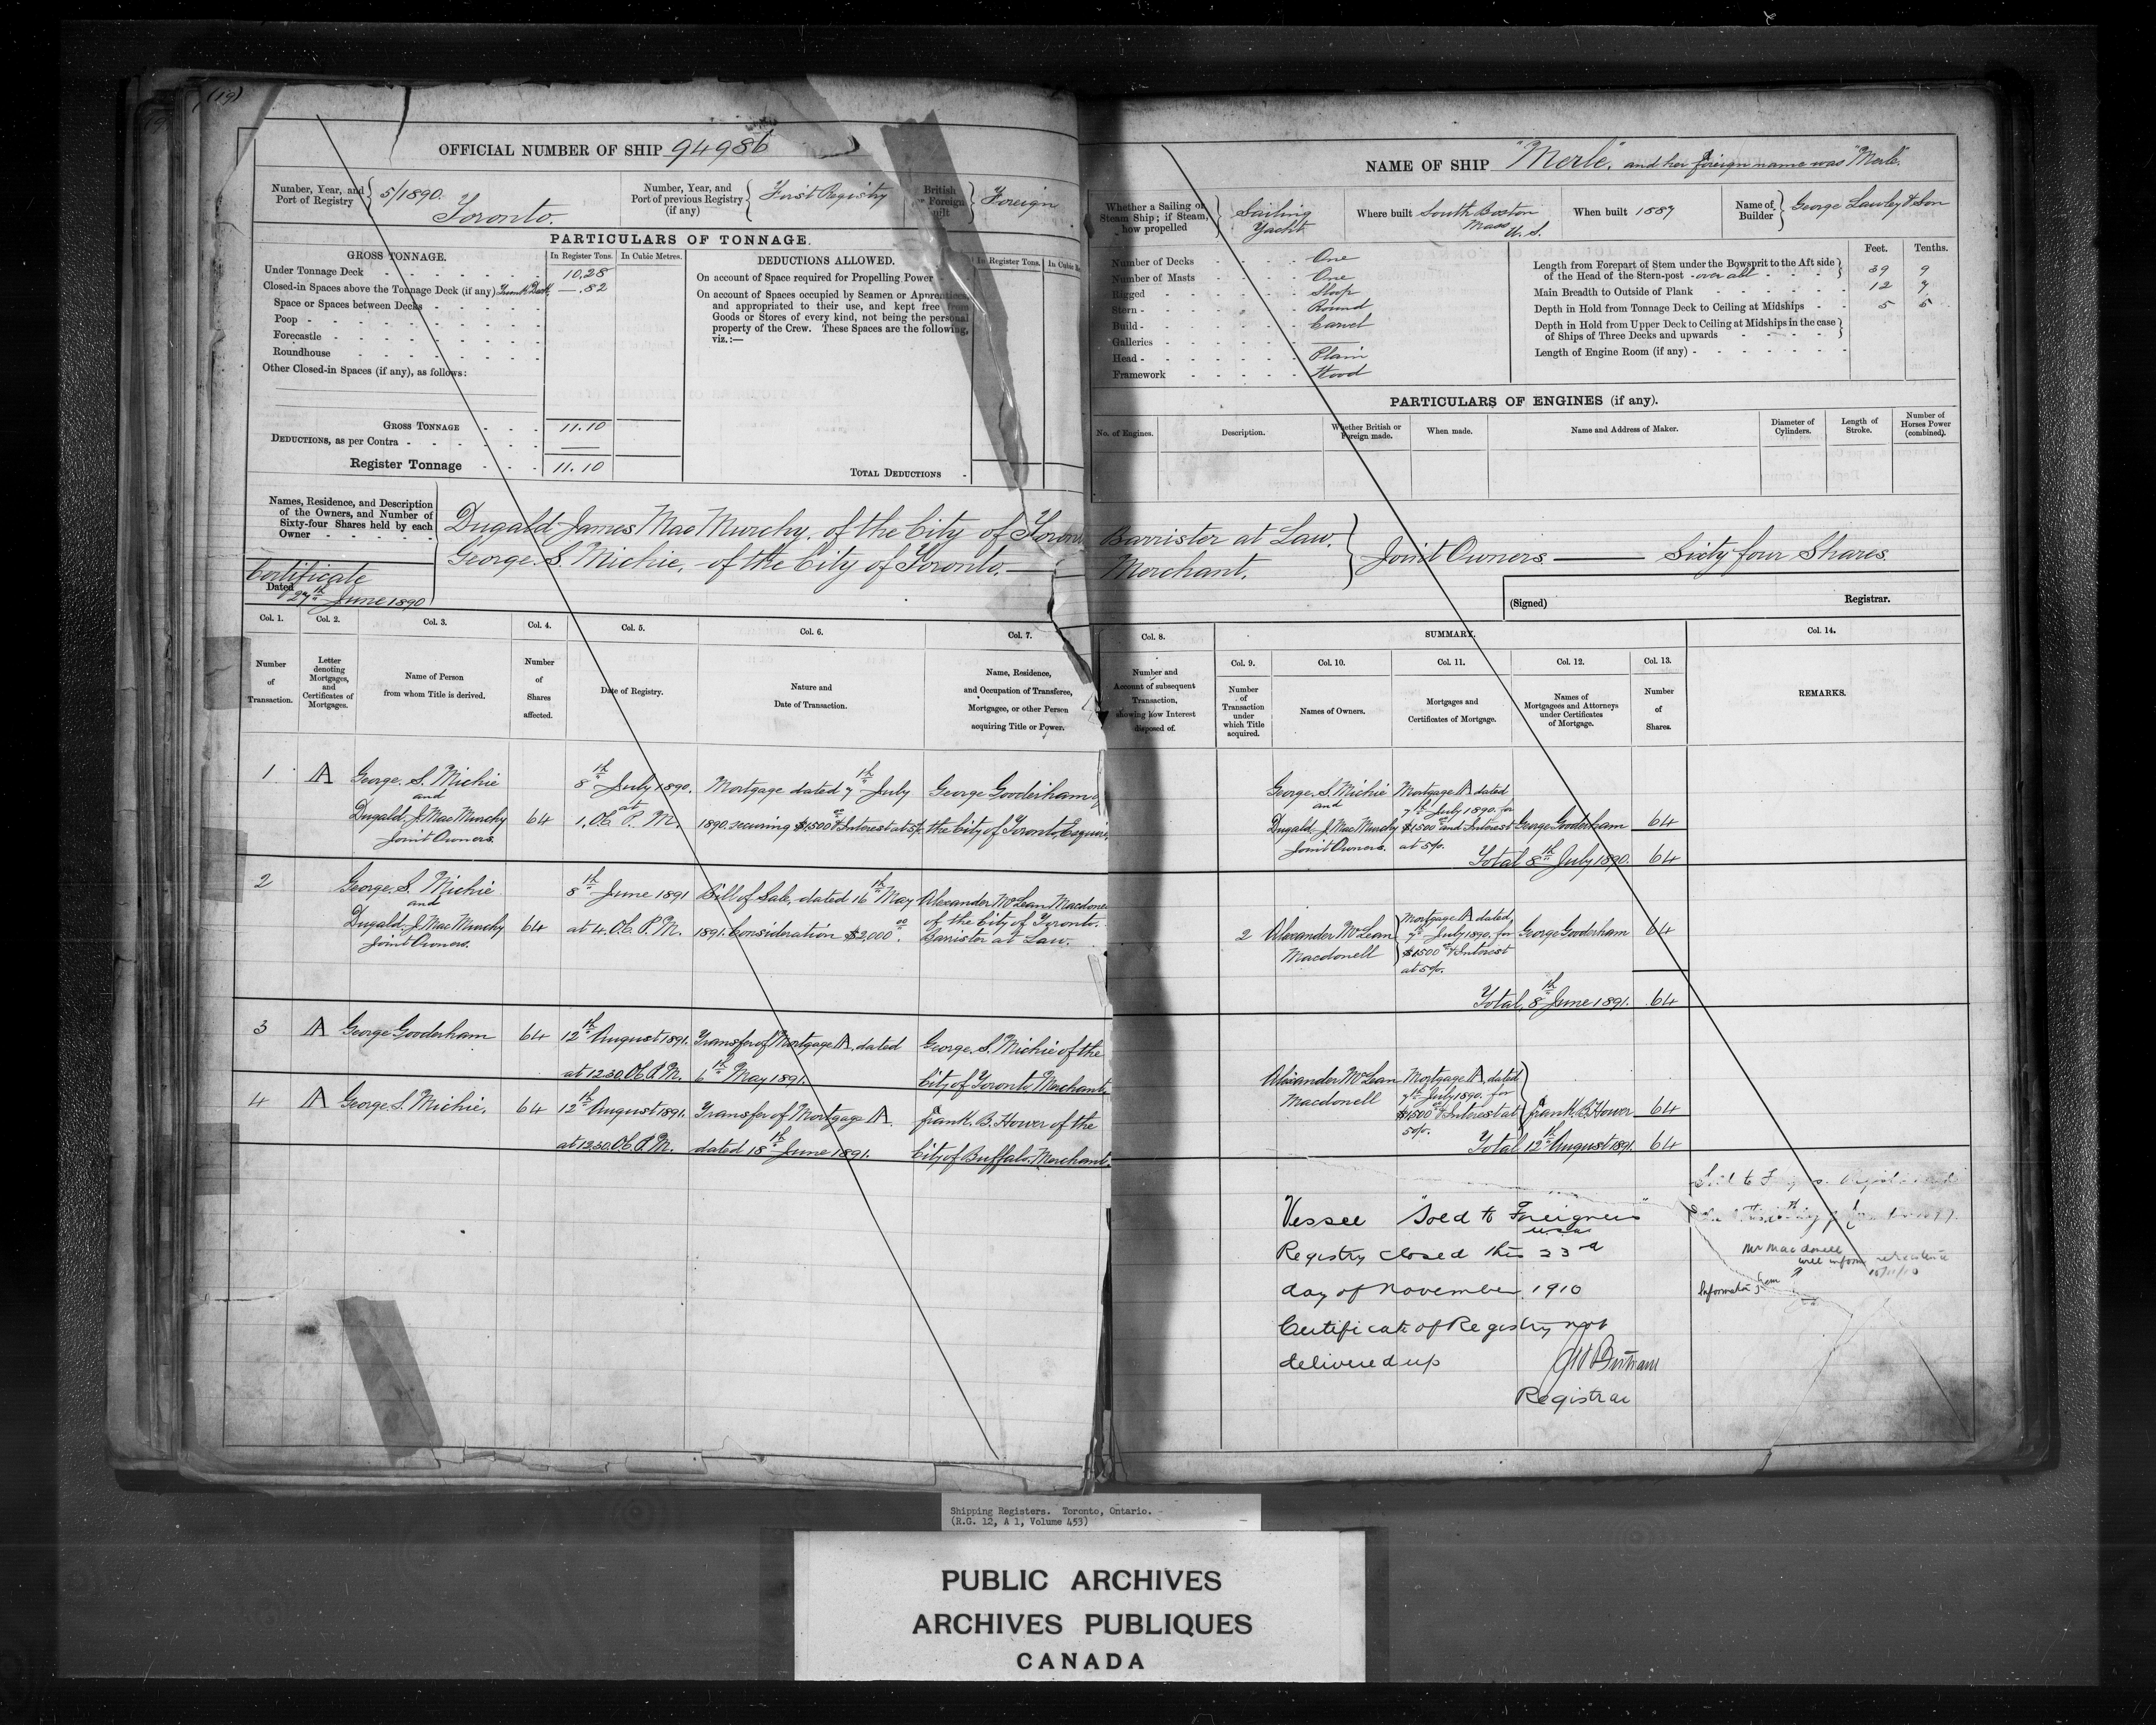 (19)
OFFICIAL NUMBER OF SHIP 94986
Number, Year, and Port of Registry 5/1890. Toronto.
Number, Year, and Port of previous Registry (if any) First Registry
British or Foreign built Foreign
PARTICULARS OF TONNAGE.
GROSS TONNAGE. In Register Tons. In Cubic Metres.
Under Tonnage Deck 10.28
Closed-in Spaces above the Tonnage Deck (if any) Trunk Deck — .82
Space or Spaces between Decks
Poop
Forecastle
Roundhouse
Other Closed-in Spaces (if any), as follows:
GROSS TONNAGE 11.10
DEDUCTIONS, as per Contra —
Register Tonnage 11.10
DEDUCTIONS ALLOWED. In Register Tons. In Cubic
On account of Space required for Propelling Power
On account of Spaces occupied by Seamen or Apprentices,
and appropriated to their use, and kept free from
Goods or Stores of every kind, not being the personal
property of the Crew. These Spaces are the following,
viz.:—
TOTAL DEDUCTIONS
Names, Residence, and Description
of the Owners, and Number of
Sixty-four Shares held by each
Owner
Dugald James MacMurchy, of the City of Toron
George. S. Michie, - of the City of Toronto. —
Certificate
Dated 27th June 1890
NAME OF SHIP "Merle". and her foreign name was "Merle".
Whether a Sailing or Steam Ship; if Steam, how propelled Sailing Yacht
Where built South Boston Mass U. S.
When built 1887
Name of Builder George Lawley & Son
Number of Decks One
Number of Masts One
Rigged Sloop
Stern Round
Build Carvel
Galleries —
Head Plain
Framework Wood
Feet. Tenths.
Length from Forepart of Stem under the Bowsprit to the Aft side
of the Head of the Stern-post - over all 39 9
Main Breadth to Outside of Plank 12 7
Depth in Hold from Tonnage Deck to Ceiling at Midships 5 5
Depth in Hold from Upper Deck to Ceiling at Midships in the case
of Ships of Three Decks and upwards
Length of Engine Room (if any)
PARTICULARS OF ENGINES (if any).
No. of Engines. Description. Whether British or Foreign made. When made. Name and Address of Maker. Diameter of Cylinders. Length of Stroke. Number of Horses Power (combined).
Barrister at Law.
Merchant.
Joint Owners. — Sixty four Shares
(Signed) Registrar.
Col. 1. Number of Transaction.
Col. 2. Letter denoting Mortgages, and Certificates of Mortgages.
Col. 3. Name of Person from whom Title is derived.
Col. 4. Number of Shares affected.
Col. 5. Date of Registry.
Col. 6. Nature and Date of Transaction.
Col. 7. Name, Residence, and Occupation of Transferee, Mortgagee, or other Person acquiring Title or Power.
Col. 8. Number and Account of subsequent Transaction, showing how Interest disposed of.
SUMMARY.
Col. 9. Number of Transaction under which Title acquired.
Col. 10. Names of Owners.
Col. 11. Mortgages and Certificates of Mortgage.
Col. 12. Names of Mortgagees and Attorneys under Certificates of Mortgage.
Col. 13. Number of Shares.
Col. 14. REMARKS.
1 A George. S. Michie
and
Dugald. J. MacMurchy
Joint Owners.
64
8th July 1890.
at
1. O.C. P. M.
Mortgage dated 7th July
1890. securing $1500.00 & Interest at 5%.
George Gooderham of
the City of Toronto, Esquire,
George. S. Michie
and
Dugald J. MacMurchy
Joint Owners.
Mortgage A dated
7th July 1890. for
$1500.00 and Interest
at 5%.
George Gooderham 64
Total 8th July 1890. 64
2 George. S. Michie
and
Dugald. J. MacMurchy
Joint Owners.
64
8th June 1891
at 4. O.C. P. M.
Bill of Sale, dated 16th May
1891. Consideration $2,000.00.
Alexander McLean Macdone
of the City of Toronto.
Barrister at Law.
2 Alexander McLean
Macdonell
Mortgage A dated,
7th July 1890, for
$1500.00 & Interest
at 5%.
George Gooderham 64
Total, 8th June 1891. 64
3 A George Gooderham 64
12th August 1891.
at 12.30. O.C. P.M.
Transfer of Mortgage A. dated
6th May 1891.
George. S. Michie of the
City of Toronto Merchant.
4 A George. S. Michie. 64
12th August 1891.
at 12.30. O.C. P.M.
Transfer of Mortgage A.
dated 18th June 1891.
Frank. B. Hower of the
City of Buffalo. Merchant.
Alexander McLean
Macdonell
Mortgage A. dated
7th July 1890. for
$1500.00 & Interest at
5%.
Frank. B. Hower 64
Total 12th August 1891. 64
Vessel "Sold to Foreigners"
U.S.A.
Registry closed this 23rd
day of November 1910
Certificate of Registry not
delivered up
Registrar
Sold to
Mr Macdonell
will inform
15/11/10
Information from
Shipping Registers. Toronto, Ontario.
(R.G. 12, A 1, Volume 453)
PUBLIC ARCHIVES
ARCHIVES PUBLIQUES
CANADA